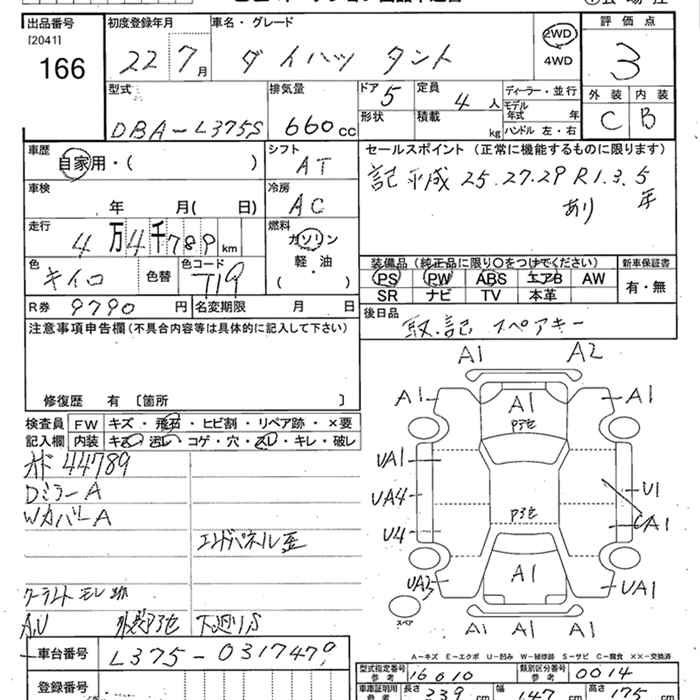 出品番号
[2041]
166
初度登録年月
22 7月
車名・グレード
ダイハツ タント
2WD
4WD
評価点
3
外装 内装
C B
型式
DBA-L375S
排気量
660cc
ドア 5
形状
定員 4人
積載 kg
ディーラー・並行
モデル年式 年
ハンドル 左・右
車歴
自家用・( )
シフト
AT
セールスポイント (正常に機能するものに限ります)
記 平成 25.27.29 R1.3.5年
あり
車検
年 月( 日)
冷房
AC
走行
4万4千789km
燃料
ガソリン
軽・油
( )
色
キイロ
色替
色コード
T19
装備品 (純正品に限り〇をつけてください)
PS PW ABS エアB AW
SR ナビ TV 本革
新車保証書
有・無
R券 9790円
名変期限 月 日
後日品
取.記 スペアキー
注意事項申告欄 (不具合内容等は具体的に記入して下さい)
修復歴 有 〔箇所 〕
検査員記入欄
FW キズ・飛石・ヒビ割・リペア跡・×要
内装 キズ・汚レ・コゲ・穴・スレ・キレ・破レ
44789
Dミラー A
Wカバー A
エンドパネル歪
クーラント モレ 跡
下廻りS
A1 A2
A1 A1 A1
UA1
UA4 U1
U4 CA1
UA3 A1 UA1
スペア
A1 A1 A1
A-キズ E-エクボ U-凹み W-補修跡 S-サビ C-腐食 XX-交換済
車台番号
L375-0317470
登録番号
型式指定番号 参考 16010
類別区分番号 参考 0014
車庫証明用 参考 長さ 339cm 幅 147cm 高さ 175cm